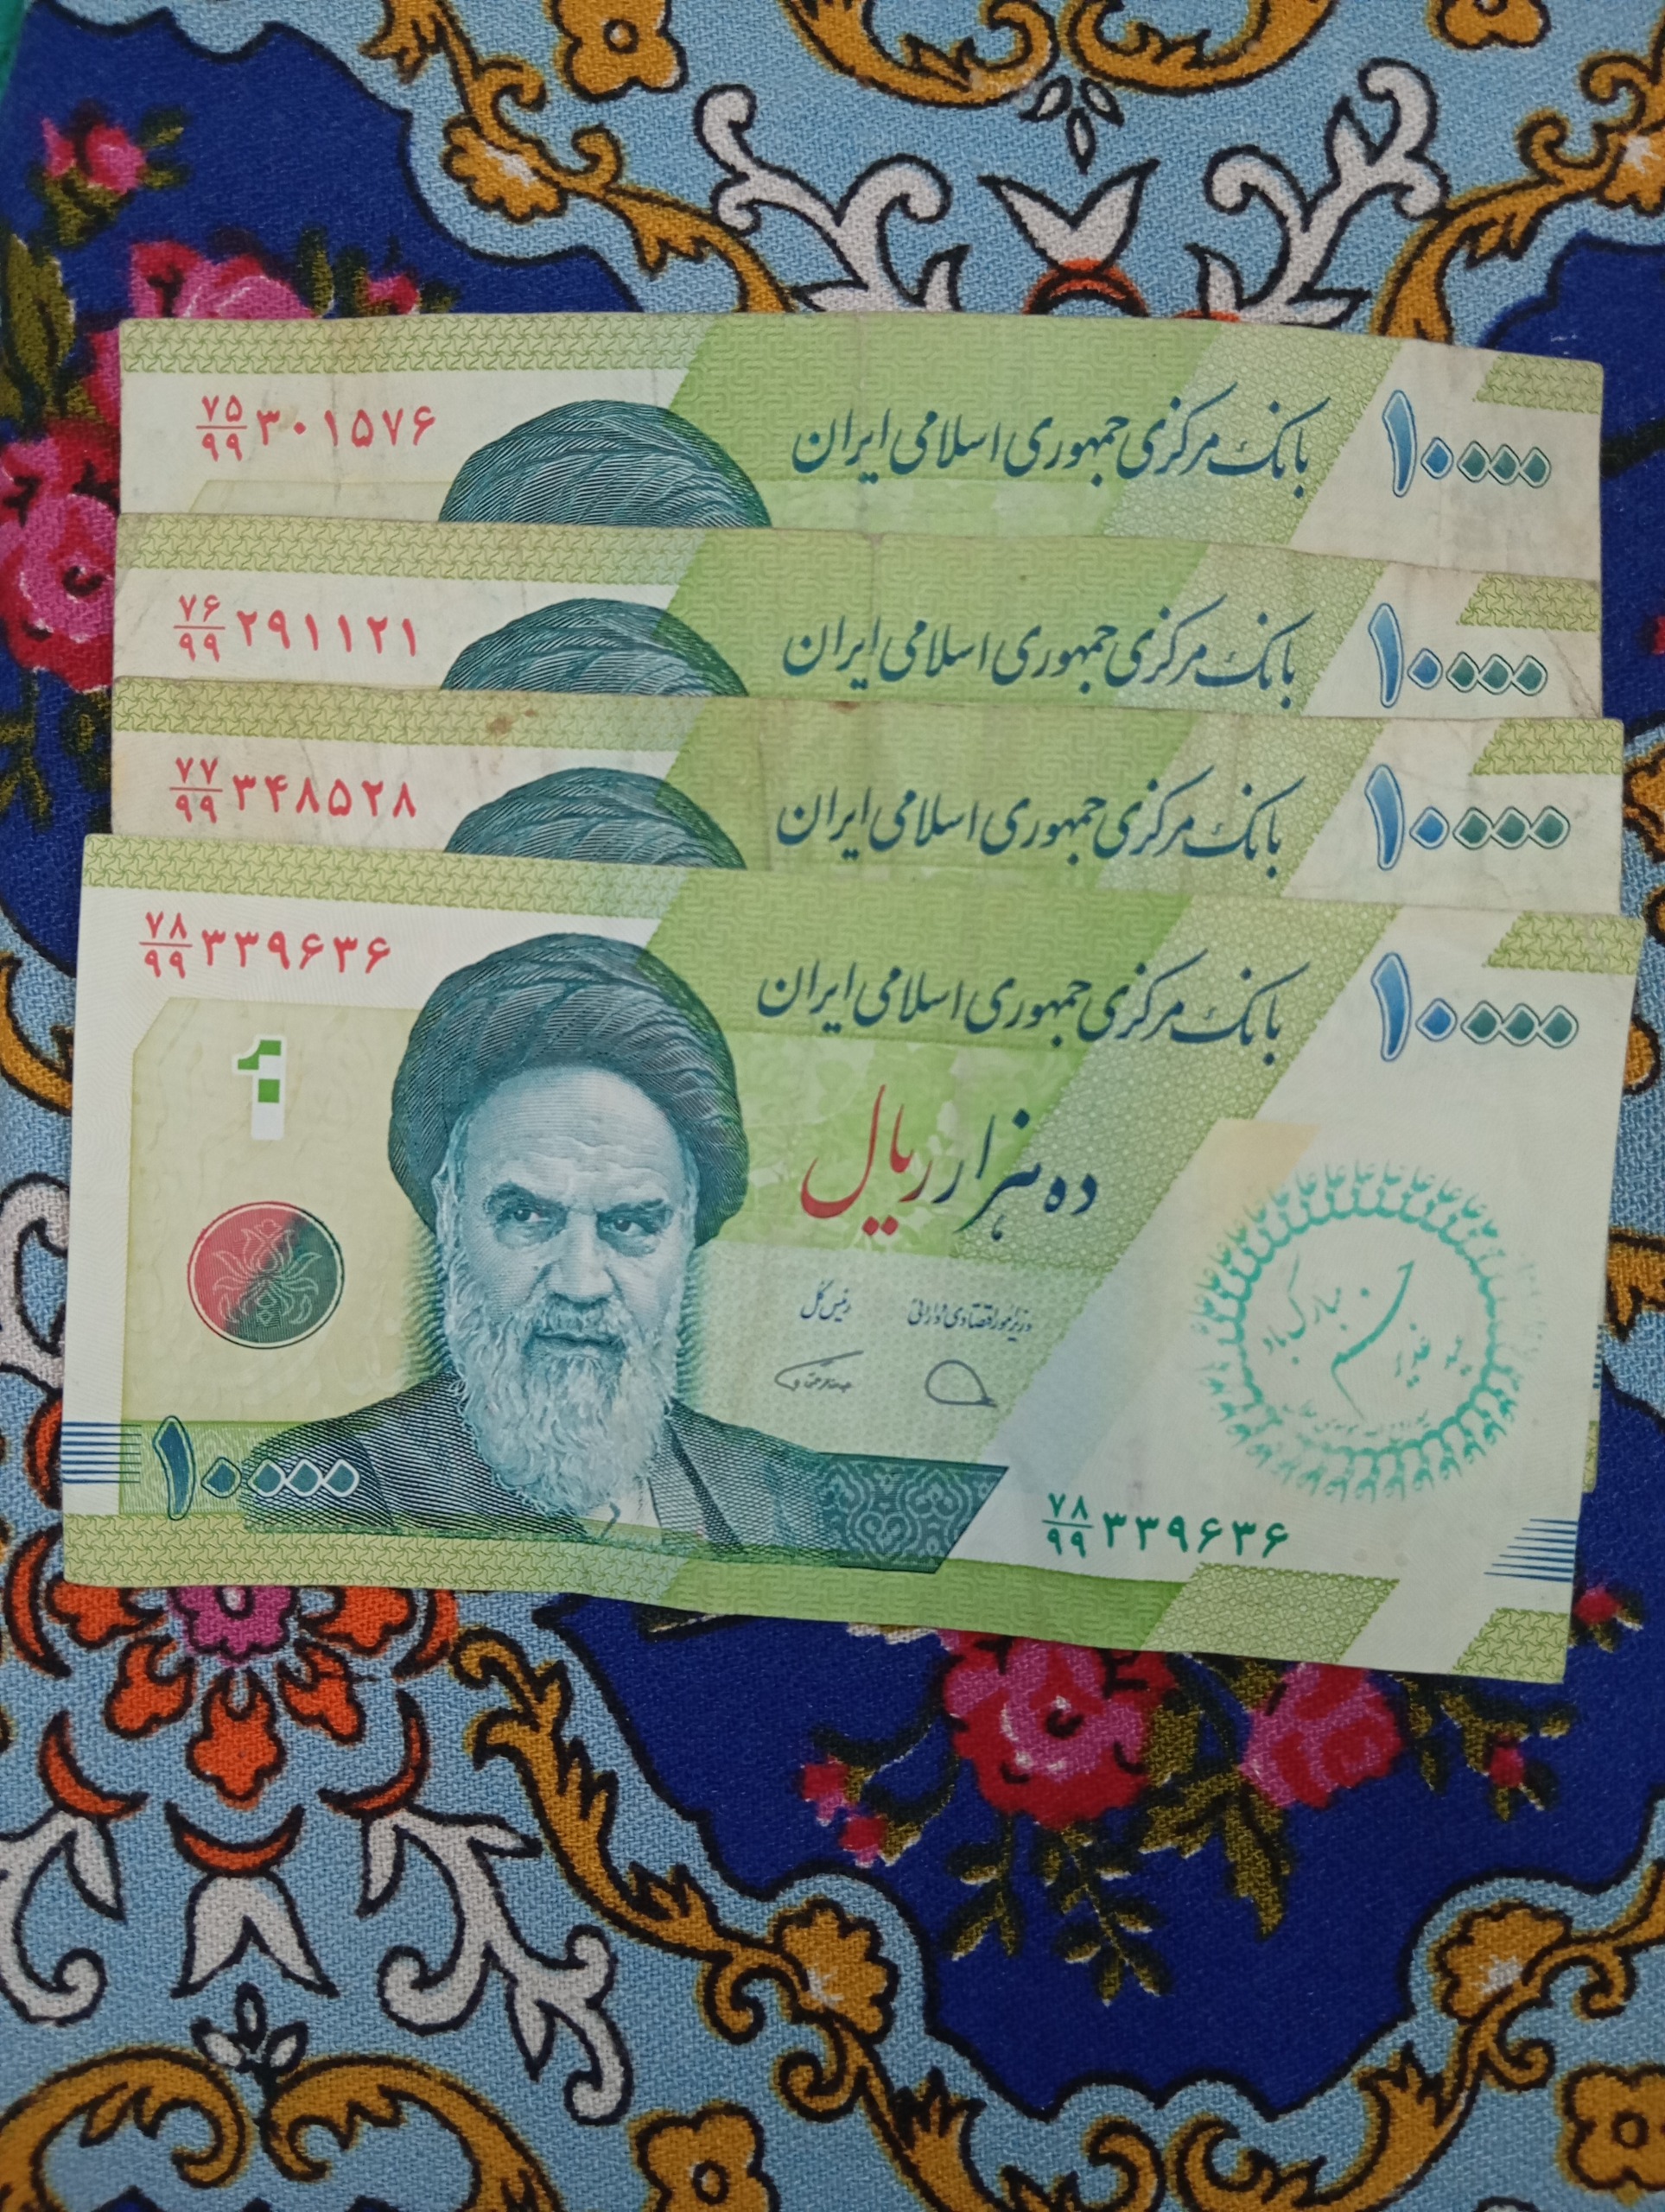 ۷۵/۹۹ ۳۰۱۵۷۶
بانک مرکزی جمهوری اسلامی ایران
۱۰۰۰۰
۷۶/۹۹ ۲۹۱۱۲۱
بانک مرکزی جمهوری اسلامی ایران
۱۰۰۰۰
۷۷/۹۹ ۳۴۸۵۲۸
بانک مرکزی جمهوری اسلامی ایران
۱۰۰۰۰
۷۸/۹۹ ۳۳۹۶۳۶
بانک مرکزی جمهوری اسلامی ایران
۱۰۰۰۰
۱
ده هزار ریال
وزیر امور اقتصادی و دارائی
رئیس کل
عید غدیر خم مبارک باد
۱۰۰۰۰
۷۸/۹۹ ۳۳۹۶۳۶